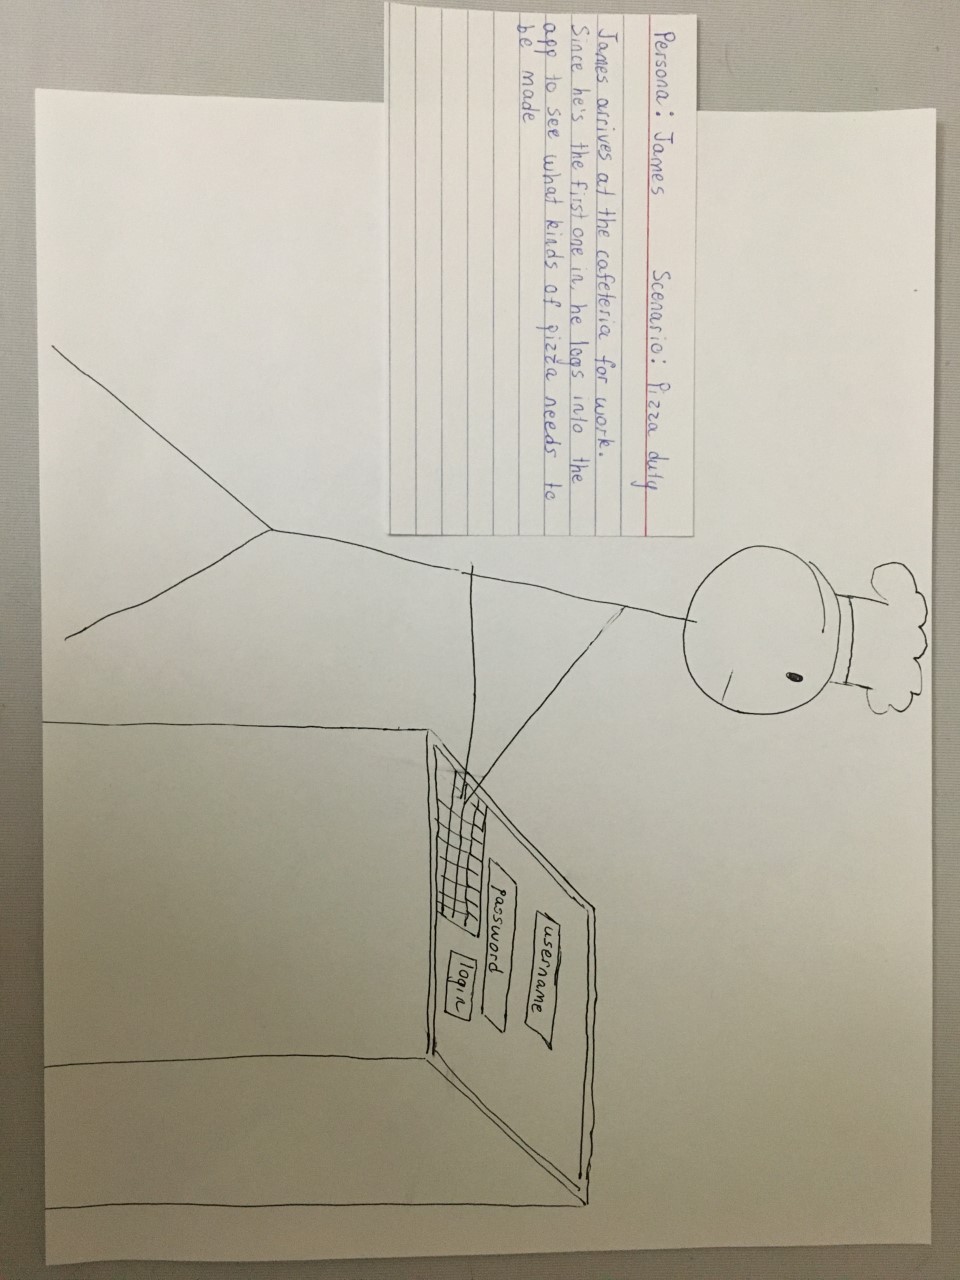 Persona: James Scenario: Pizza duty
James arrives at the cafeteria for work.
Since he's the first one in, he logs into the
app to see what kinds of pizza needs to
be made
username
password
login